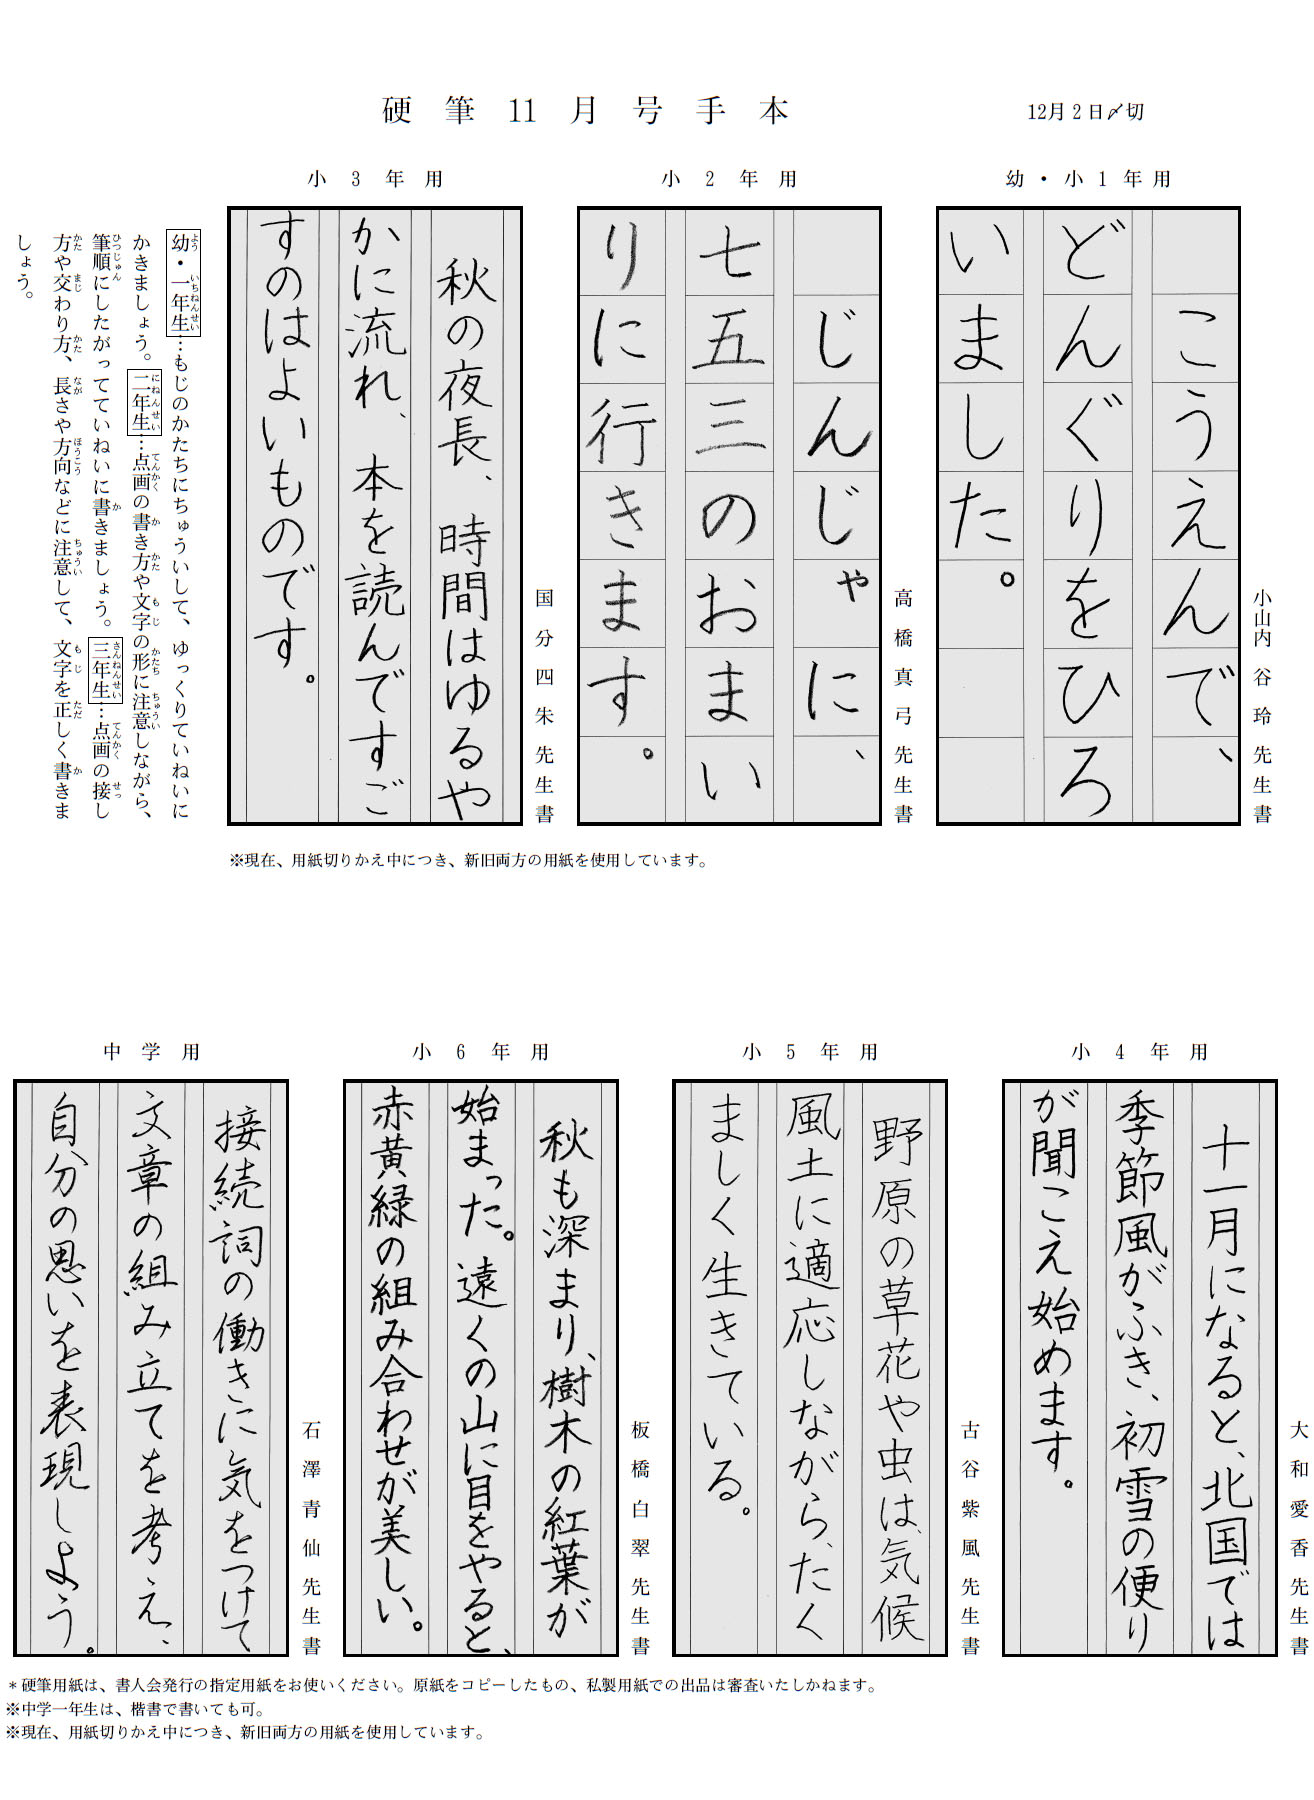 硬筆11月号手本
12月2日〆切
幼・小1年用
こうえんで、
どんぐりをひろ
いました。
小山内谷玲先生書
小2年用
じんじゃに、
七五三のおまい
りに行きます。
高橋真弓先生書
小3年用
秋の夜長、時間はゆるや
かに流れ、本を読んですご
すのはよいものです。
国分四朱先生書
幼・一年生…もじのかたちにちゅういして、ゆっくりていねいに
かきましょう。二年生…点画の書き方や文字の形に注意しながら、
筆順にしたがってていねいに書きましょう。三年生…点画の接し
方や交わり方、長さや方向などに注意して、文字を正しく書きま
しょう。
※現在、用紙切りかえ中につき、新旧両方の用紙を使用しています。
小4年用
十一月になると、北国では
季節風がふき、初雪の便り
が聞こえ始めます。
大和愛香先生書
小5年用
野原の草花や虫は、気候
風土に適応しながら、たく
ましく生きている。
古谷紫風先生書
小6年用
秋も深まり、樹木の紅葉が
始まった。遠くの山に目をやると、
赤黄緑の組み合わせが美しい。
板橋白翠先生書
中学用
接続詞の働きに気をつけて
文章の組み立てを考え、
自分の思いを表現しよう。
石澤青仙先生書
＊硬筆用紙は、書人会発行の指定用紙をお使いください。原紙をコピーしたもの、私製用紙での出品は審査いたしかねます。
※中学一年生は、楷書で書いても可。
※現在、用紙切りかえ中につき、新旧両方の用紙を使用しています。